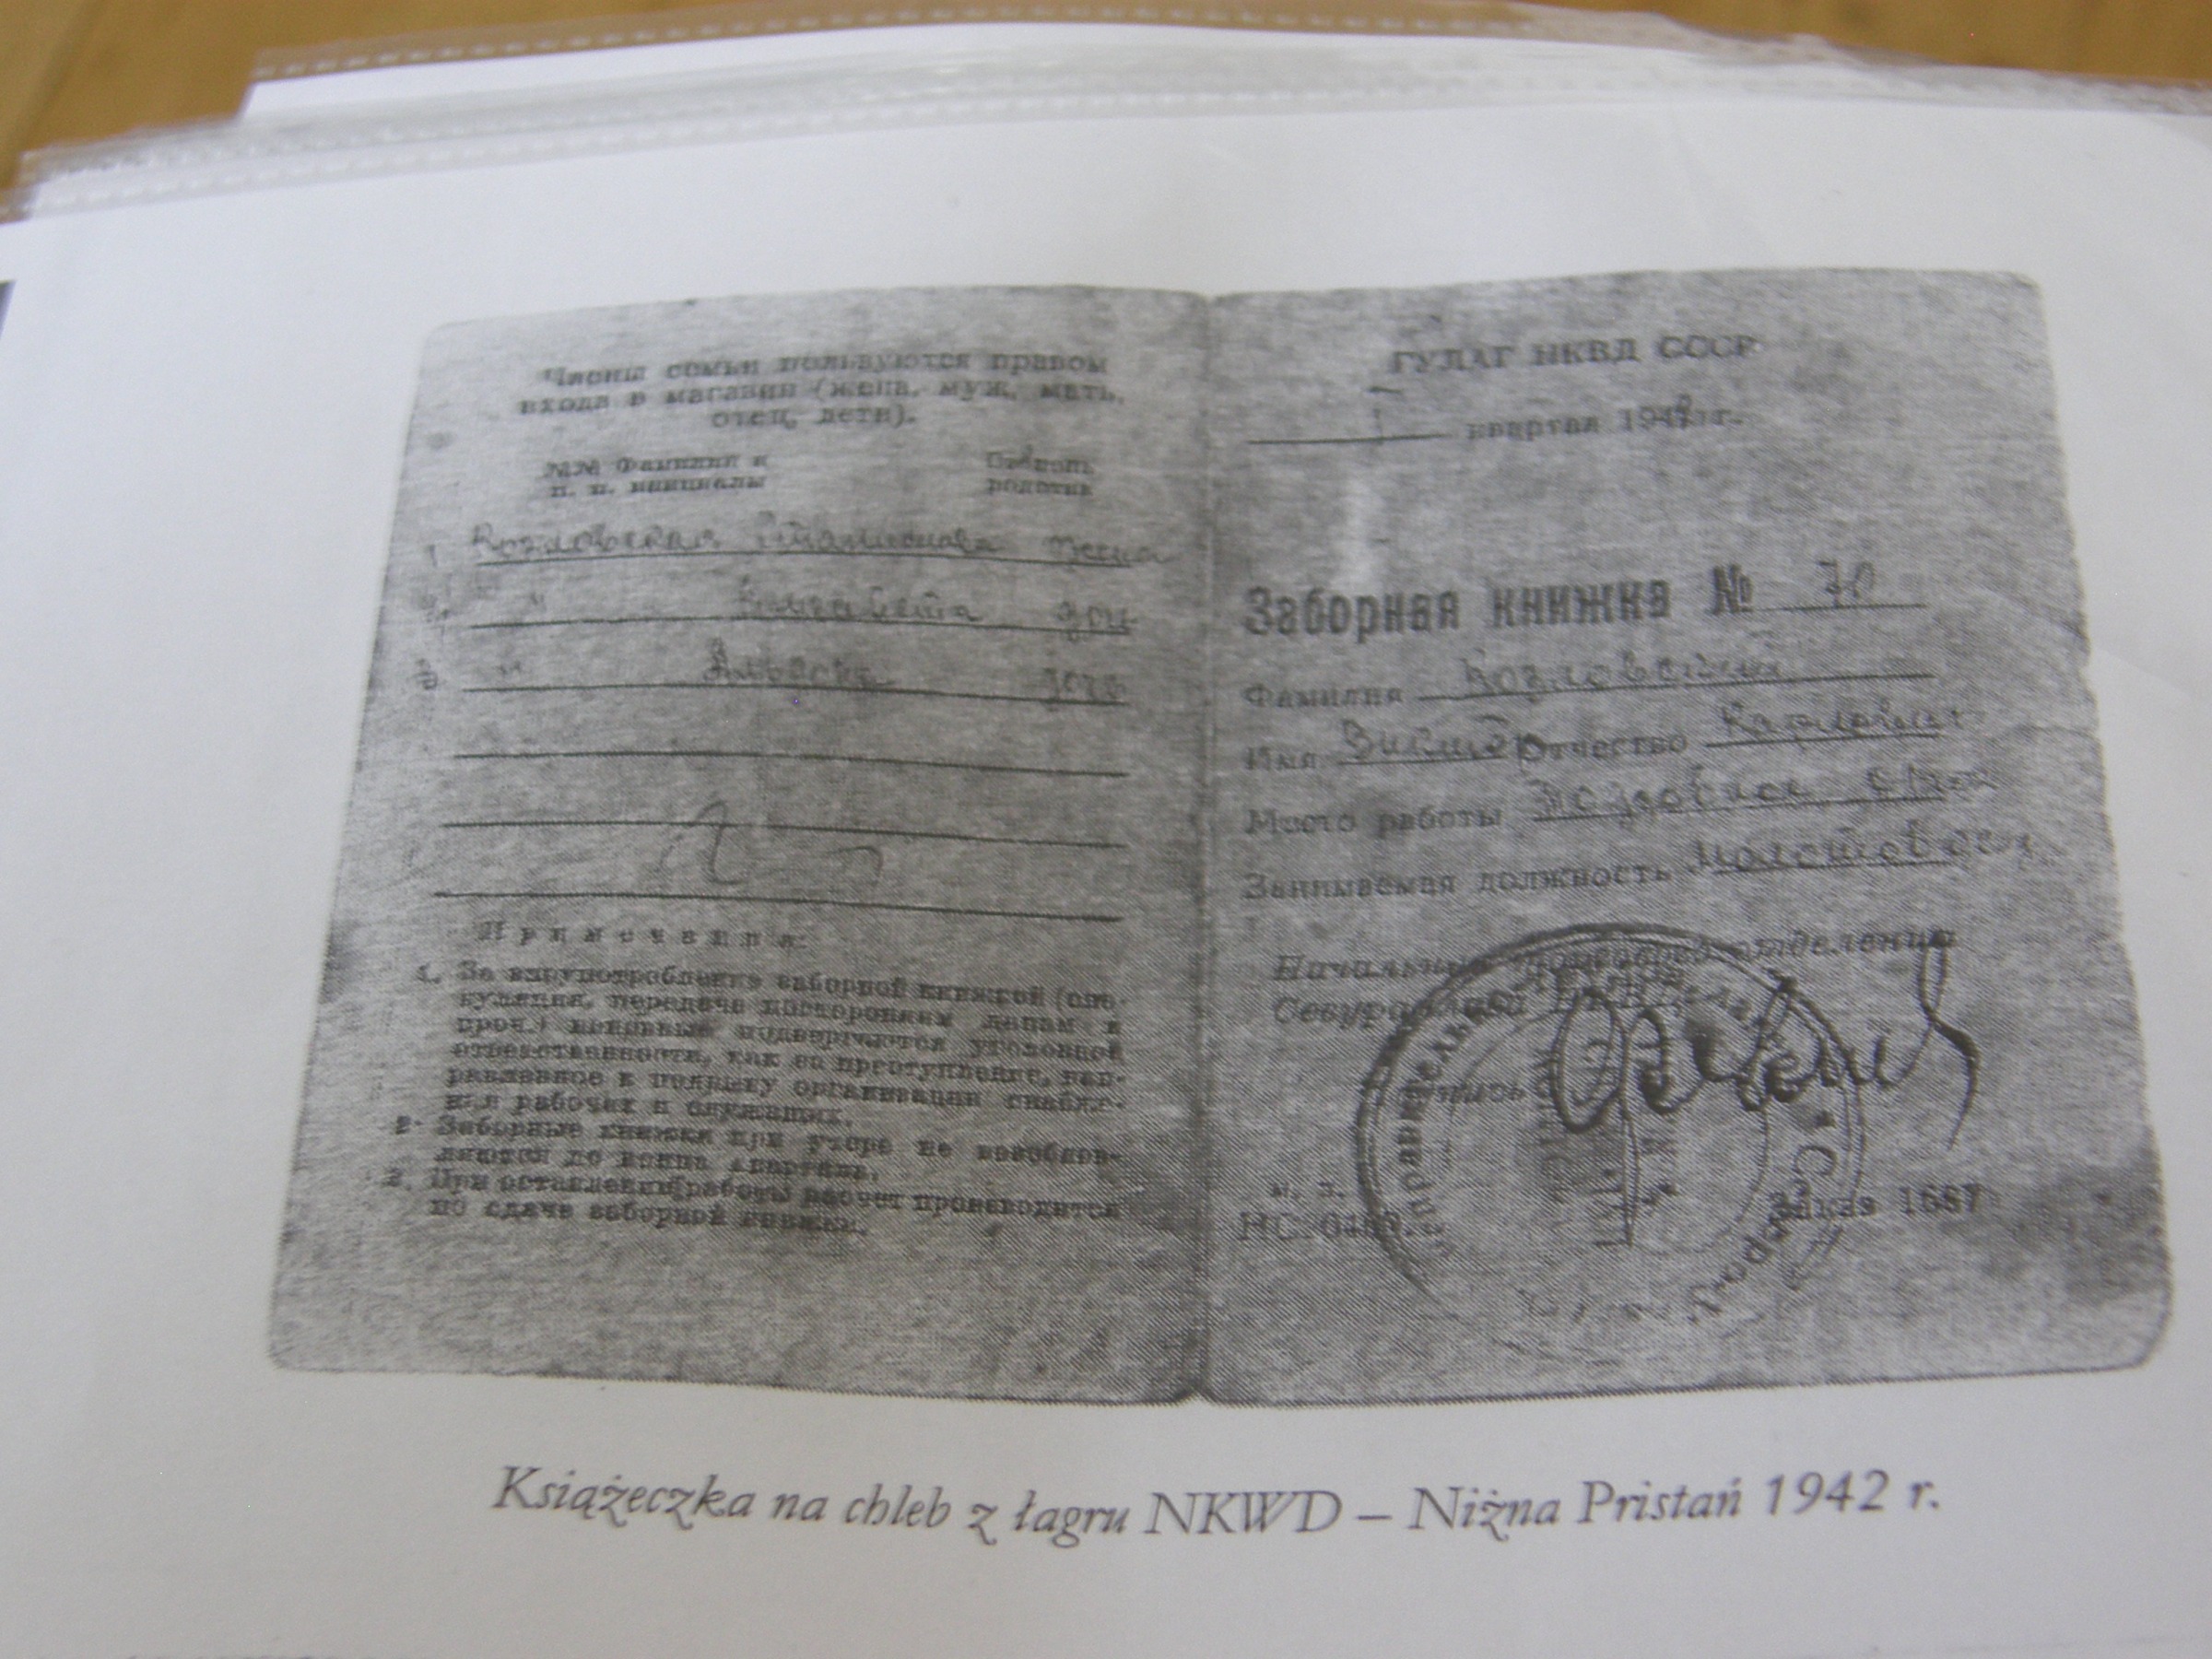 Члены семьи пользуются правом
входа в магазин (жена, муж, мать,
отец, дети).
№№ Фамилия и
п. п. инициалы
Степень
родства
1 Козловская жена
2. " Елизавета дочь
3 " дочь
Примечания:
1. За злоупотребление заборной книжкой (спе-
куляция, передача посторонним лицам и
проч.) виновные подвергаются уголовной
ответственности, как за преступление, нап-
равленное к подрыву организации снабже-
ния рабочих и служащих.
2. Заборные книжки при утере не возобнов-
ляются до конца квартала.
3. При оставлении работы расчет производится
по сдаче заборной книжки.
ГУЛАГ НКВД СССР
I квартал 1942 г.
Заборная книжка № 70
Фамилия Козловский
Имя Виктор Отчество Карлович
Место работы
Занимаемая должность
Начальник торгового отделения
Севураллага НКВД
Заказ 1687
Książeczka na chleb z łagru NKWD – Niżna Pristań 1942 r.